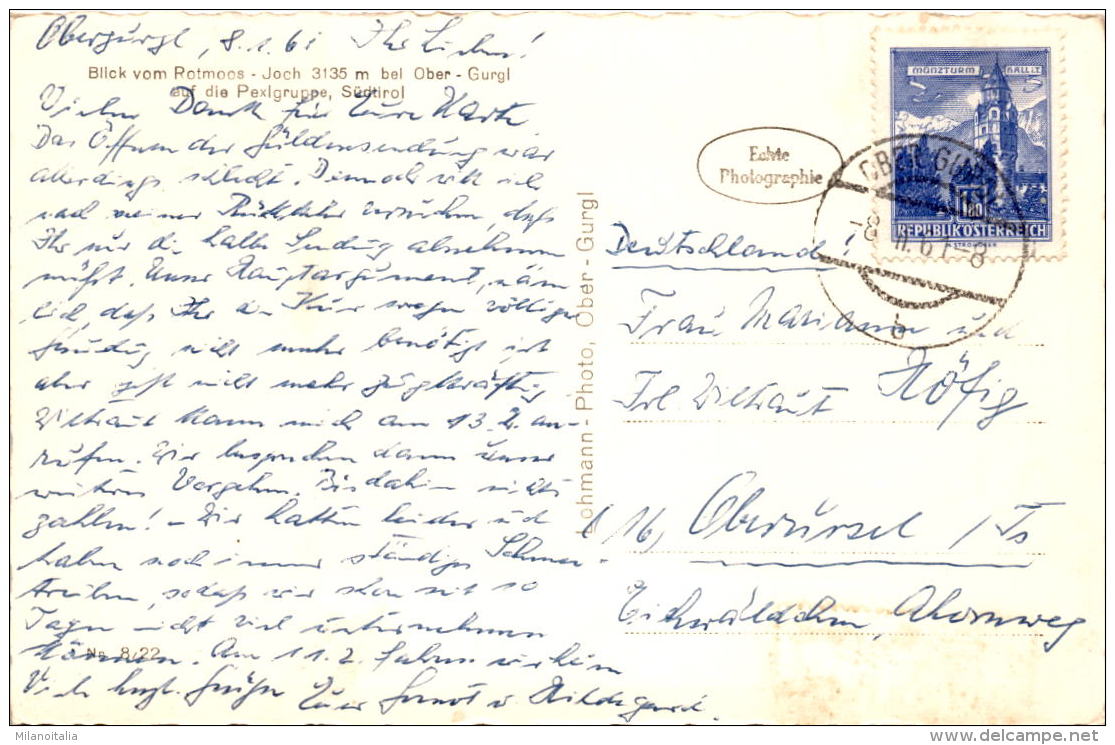 Obergurgl, 8.1.61 Ihr Lieben!
Blick vom Rotmoos - Joch 3135 m bei Ober - Gurgl
auf die Pexlgruppe, Südtirol
Vielen Dank für Eure Karte
Das Öffnen der Güldensendung war
allerdings schlecht. Dennoch will ich
nach meiner Rückkehr versuchen, daß
Ihr nur die halbe Sendung abnehmen
müßt. Unser Hauptargument, näm
lich, daß Ihr die Kur wegen völliger
nicht mehr benötigt ist
aber jetzt nicht mehr zugkräftig
Wiltraut kann mich am 13.2. an-
rufen. Wir besprechen dann unser
weiteres Vorgehen. Bis dahin nichts
zahlen! - Wir hatten leider und
haben noch immer ständig Schnee-
treiben, sodaß wir schon seit 10
Tagen nicht viel unternehmen
können. Am 11.2. fahren wir heim
No. 8/22
Viele herzl. Grüße Eure Ernst u. Hildegard.
Lohmann - Photo, Ober - Gurgl
Echte
Photographie
MÜNZTURM HALL I.T.
1.80
REPUBLIK ÖSTERREICH
OBERGURGL
-8. II. 61-8
b
Deutschland!
Frau Mariann und
Frl. Wiltraut Höfig
(16) Oberursel / Ts
Eichwäldchen, Ahornweg
Milanoitalia
www.delcampe.net